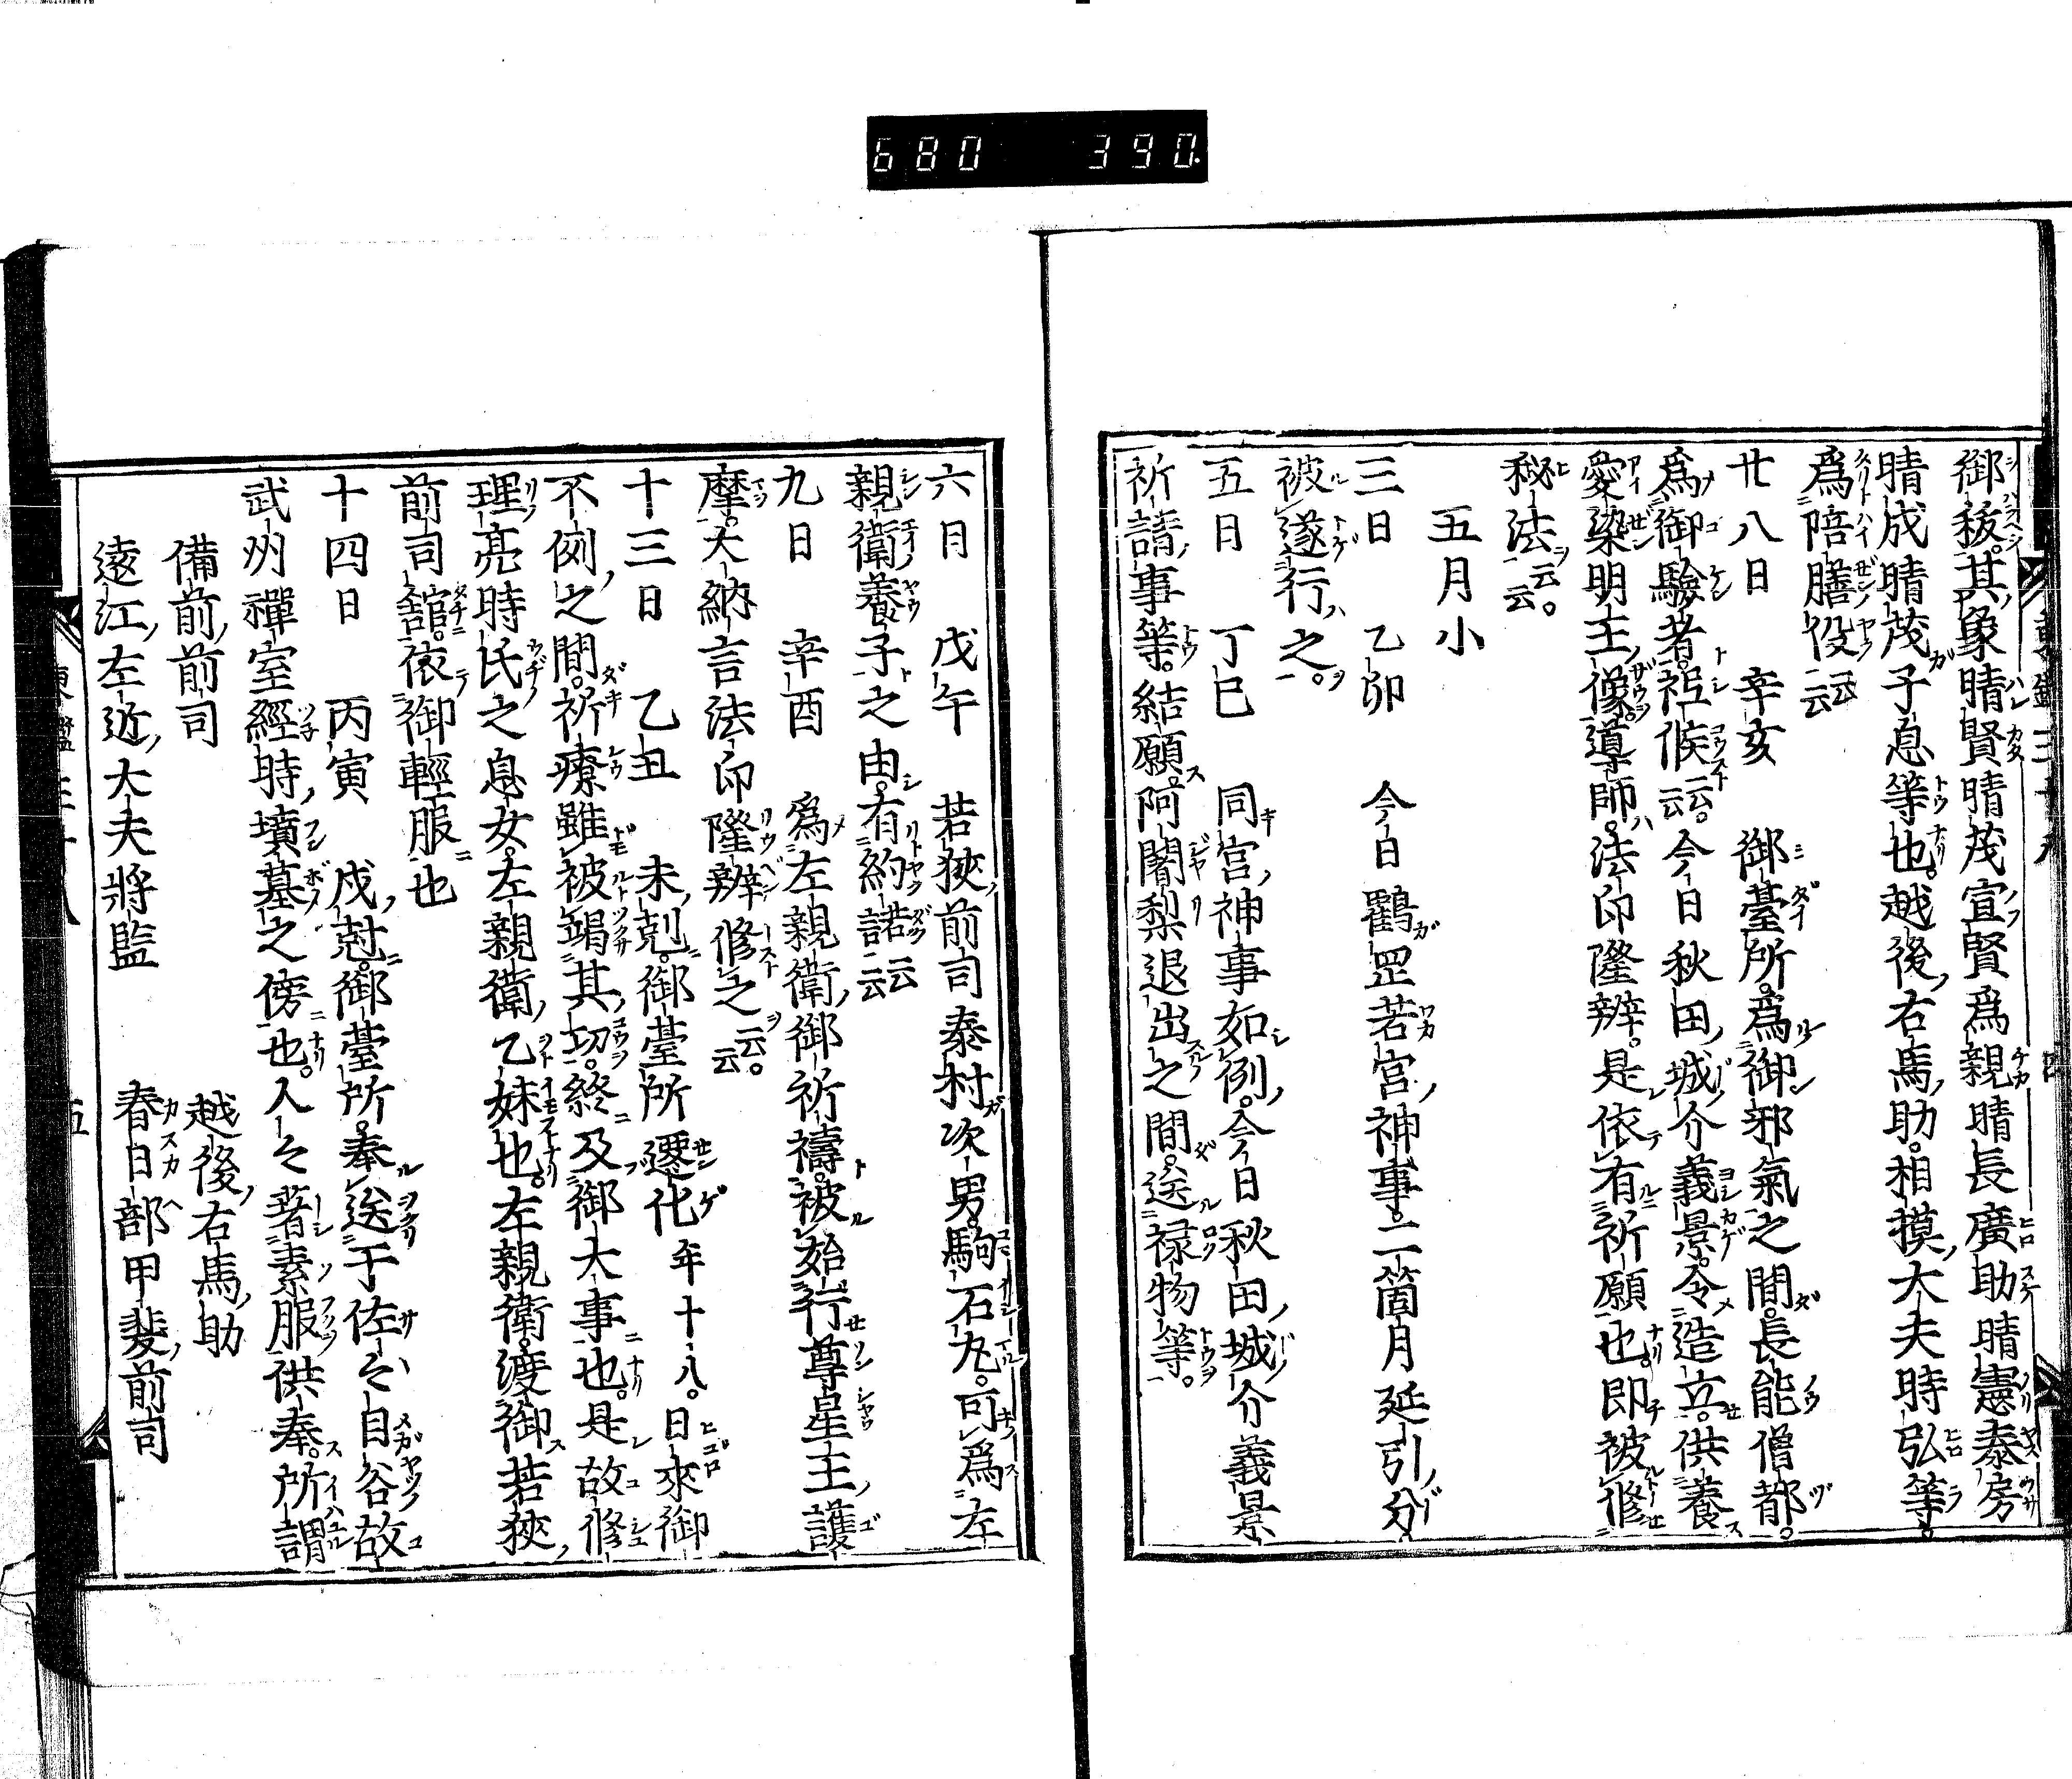 680 390
御祓其象晴賢晴茂宣賢爲親晴長廣助晴憲泰房
晴成晴茂子息等也越後右馬助相摸大夫時弘等
爲陪膳役云云
廿八日 辛亥 御臺所爲御邪氣之間長能僧都
爲御驗者祗候云云今日秋田城介義景令造立供養
愛染明王像導師法印隆辨是依有祈願也即被修
秘法云云
五月小
三日 乙卯 今日鸖罡若宮神事二箇月延引分
被遂行之
五日 丁巳 同宮神事如例今日秋田城介義景
祈請事等結願阿闍梨退出之間送禄物等
六月 戊午 若狹前司泰村次男駒石丸可爲左
親衛養子之由有約諾云云
九日 辛酉 爲左親衛御祈禱被始行尊星王護
摩大納言法印隆辨修之云云
十三日 乙丑 未剋御臺所遷化年十八日來御
不例之間祈療雖被竭其功終及御大事也是故修
理亮時氏之息女左親衛乙妹也左親衛渡御若狹
前司舘依御輕服也
十四日 丙寅 戍尅御臺所奉送于佐々目谷故
武州禪室經時墳墓之傍也人々著素服供奉所謂
備前前司 越後右馬助
遠江左近大夫將監 春日部甲斐前司